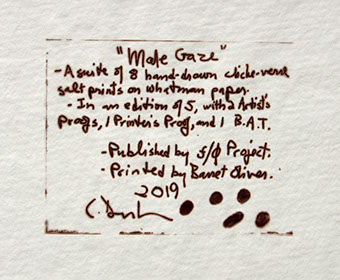 "Male Gaze"
-A suite of 8 hand-drawn cliche-verre
salt prints on whatman paper.
-In an edition of 5, with 2 Artist's
Proofs, 1 Printer's Proof, and 1 B.A.T.
-Published by f/Ø Project.
-Printed by Barret Oliver.
2019